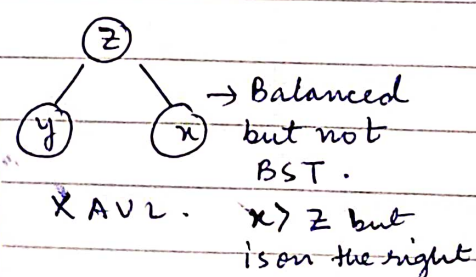 z
y
x
→ Balanced
but not
BST.
X AVL.
x > z but
is on the right